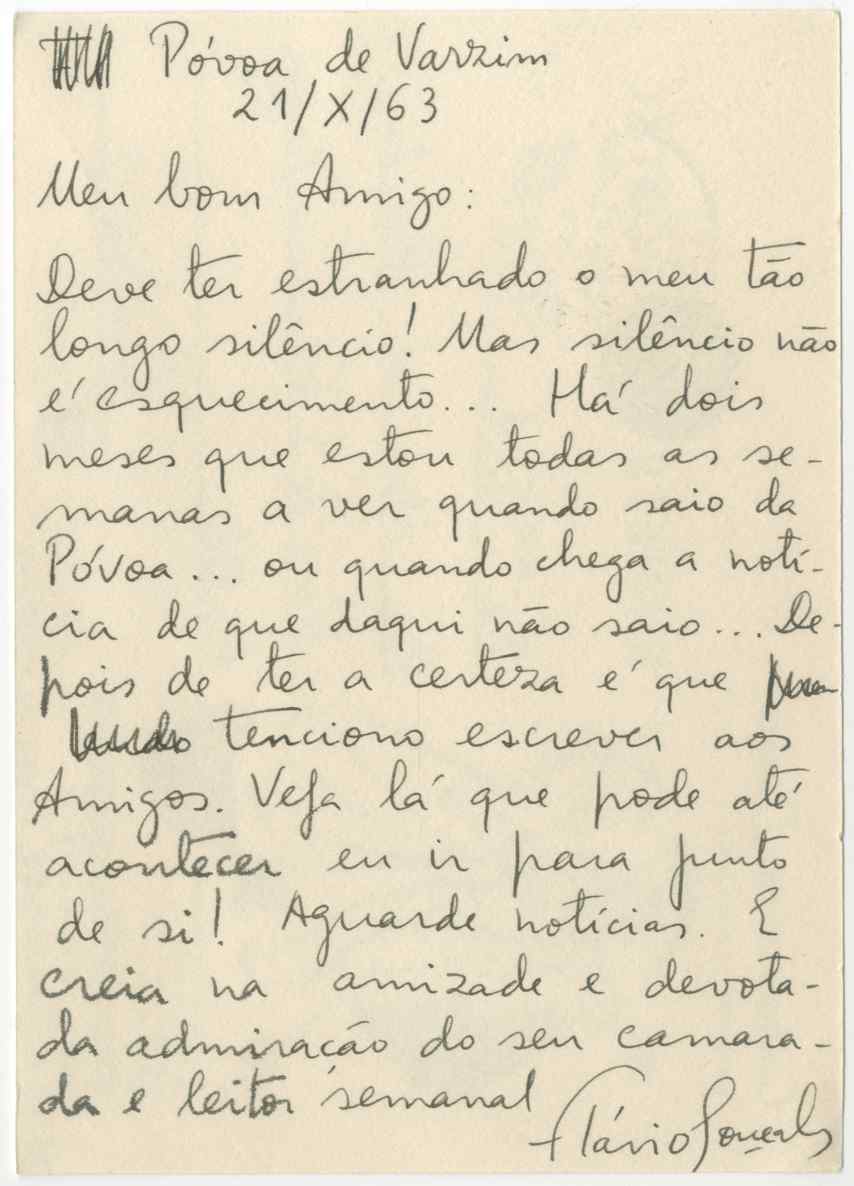 Póvoa de Varzim
21/X/63
Meu bom Amigo:
Deve ter estranhado o meu tão
longo silêncio! Mas silêncio não
é esquecimento... Há dois
meses que estou todas as se-
manas a ver quando saio da
Póvoa... ou quando chega a notí-
cia de que daqui não saio... De-
pois de ter a certeza é que
tenciono escrever aos
Amigos. Veja lá que pode até
acontecer eu ir para junto
de si! Aguarde notícias. E
creia na amizade e devota-
da admiração do seu camara-
da e leitor semanal
Flávio Gonçalves